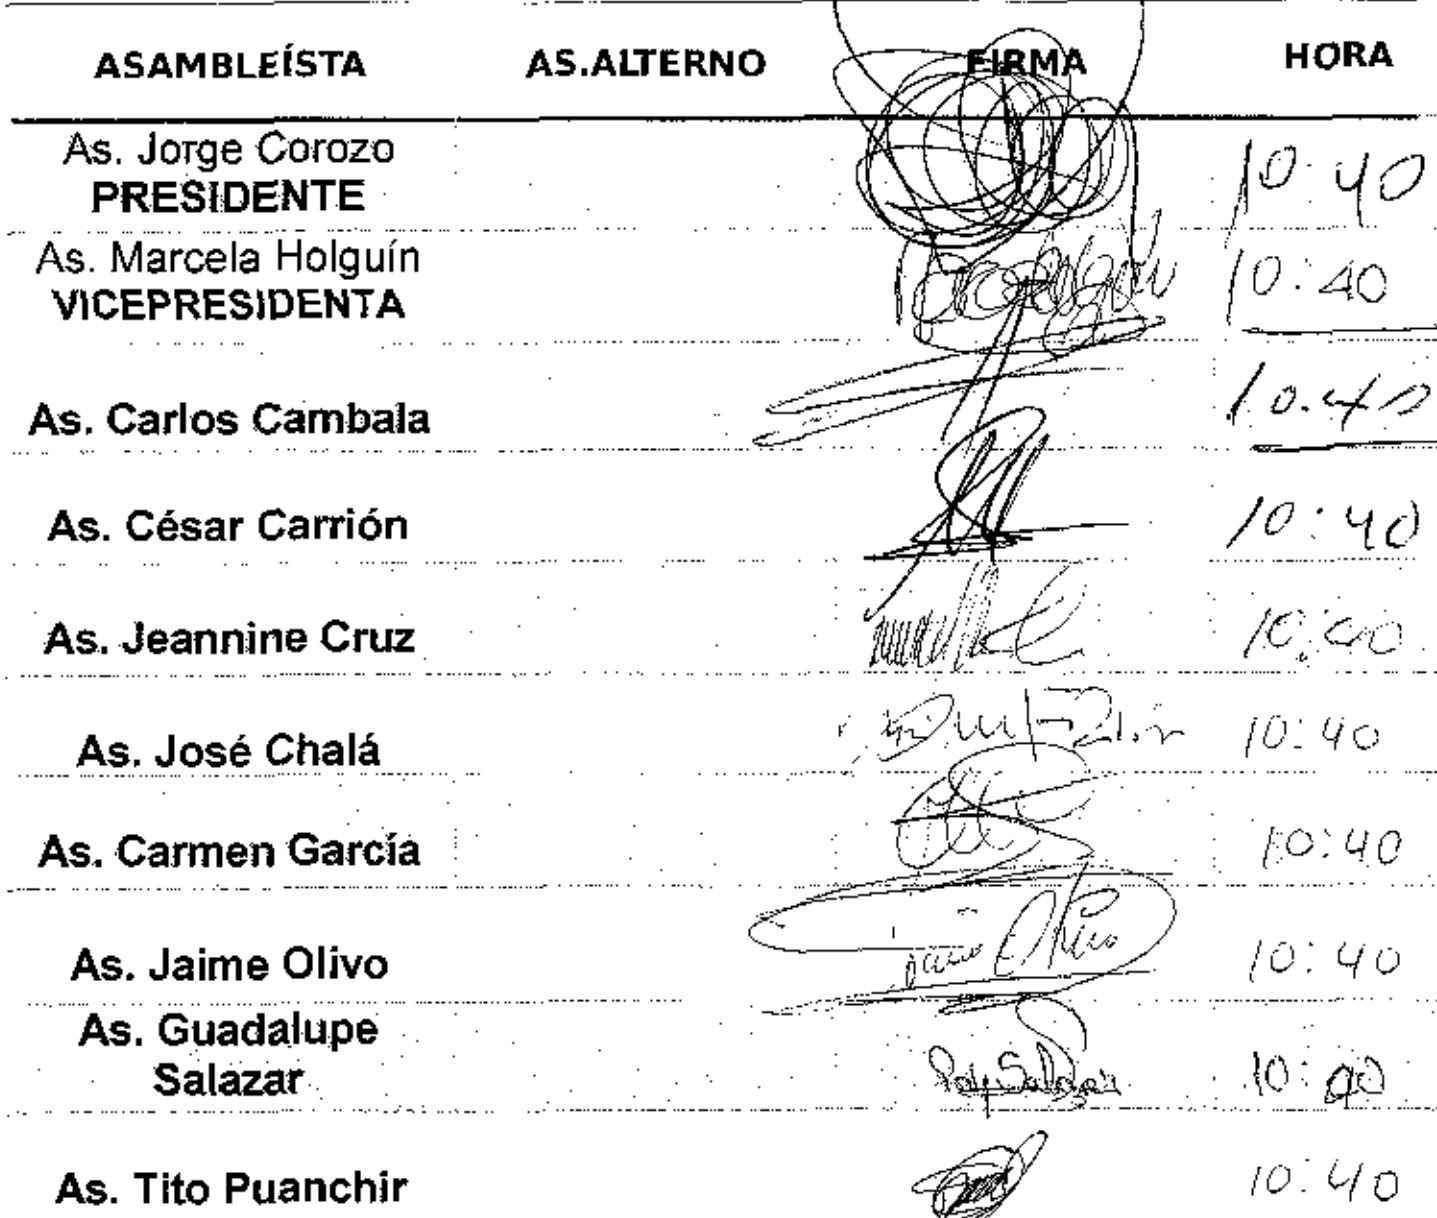 ASAMBLEÍSTA AS.ALTERNO FIRMA HORA
As. Jorge Corozo
PRESIDENTE 10:40
As. Marcela Holguín
VICEPRESIDENTA 10:40
As. Carlos Cambala 10:40
As. César Carrión 10:40
As. Jeannine Cruz 10:40
As. José Chalá 10:40
As. Carmen García 10:40
As. Jaime Olivo Jaime Olivo 10:40
As. Guadalupe
Salazar Salazar 10:40
As. Tito Puanchir 10:40